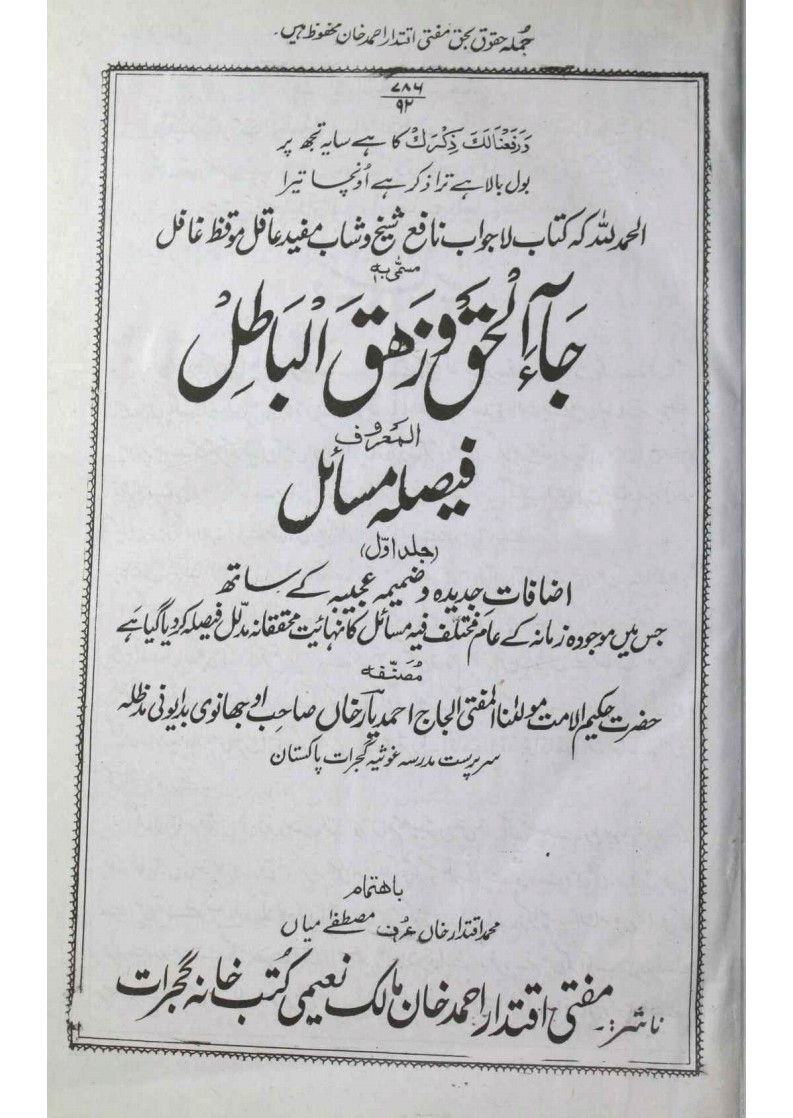 جُملہ حقوق بحق مفتی اقتدار احمد خان محفوظ ہیں.
۷۸۶
۹۲
وَرَفَعْنَالَكَ ذِكْرَكْ کا ہے سایہ تجھ پر
بول بالا ہے ترا ذکر ہے اُونچا تیرا
الحمد للہ کہ کتاب لاجواب نافع شیخ و شاب مفید عاقل موقظ غافل
مسمّٰی بہ
جَآءَ الْحَقُّ وَزَهَقَ الْبَاطِلْ
المعروف
فیصلہ مسائل
(جلد اوّل)
اضافاتِ جدیدہ و ضمیمہ عجیبہ کے ساتھ
جس میں موجودہ زمانہ کے عام مختلف فیہ مسائل کا نہائیت محققانہ مدلّل فیصلہ کر دیا گیا ہے
مُصَنّفہ
حضرت حکیم الامت مولٰنا المفتی الحاج احمد یار خاں صاحب اوجھانوی بدایونی مدظلہ
سرپرست مدرسہ غوثیہ گجرات پاکستان
باہتمام
محمد اقتدار خاں عرف مصطفٰے میاں
ناشر:۔ مفتی اقتدار احمد خان مالک نعیمی کُتب خانہ گجرات